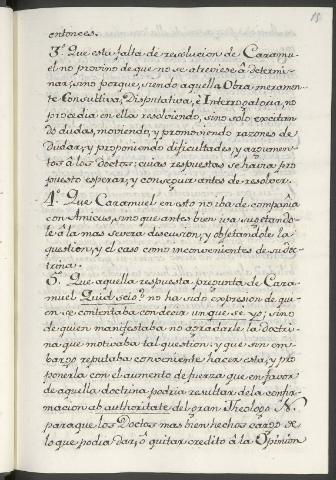 18
entonces.
3.º Que esta falta de resolucion de Caramu-
el no provino de que no se atreviese â determi-
nar; sino porque, siendo aquella Obra meramen-
te Consultiva, Disputativa, è Interrogatoria, no
procedia en ella resolviendo, sino solo excitan-
do dudas, moviendo, y promoviendo razones de
dudar, y proponiendo dificultades, y argumen-
tos â los Doctos; cuias respuestas se havia pro-
puesto esperar, y conseguir antes de resolver.
4.º Que Caramuel en esto no iba de compañia
con Amicus, sino que antes bien iva sugetando-
le â la mas severa discusion, y objetandole la
question, y el caso como inconvenientes de su doc-
trina.
5.º Que aquella respuesta, ô pregunta de Cara-
muel Quid scio? no ha sido expresion de qui-
en se contentaba con decir un que se yo; sino
de quien manifestaba no agradarle la doctri-
na que motivaba tal question; y que sin em-
bargo reputaba conveniente hacer esta, y pro-
ponerla con el aumento de fuerza que en favor
de aquella doctrina podria resultar de la confir-
macion ab authoritate del gran Theologo N.
para que los Doctos mas bien hechos cargo de
lo que podia dar, ô quitar credito â la Opinion